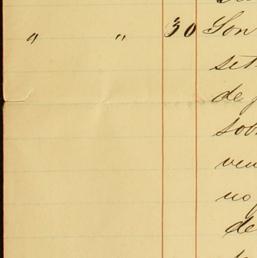 " " 30 Son
set
de
sob
ven
no
de